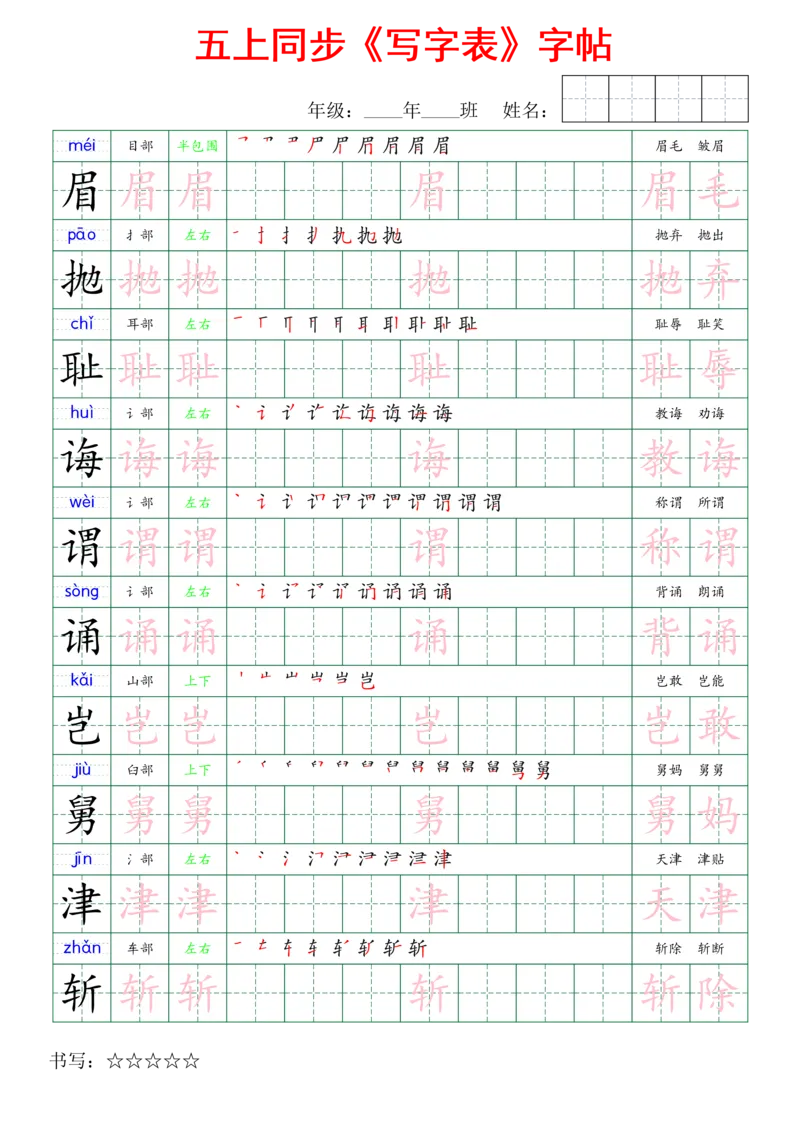 五上同步《写字表》字帖
年级：____年____班 姓名：
méi 目部 半包围 眉毛 皱眉
眉 眉 眉 眉 眉 毛
pāo 扌部 左右 抛弃 抛出
抛 抛 抛 抛 抛 弃
chǐ 耳部 左右 耻辱 耻笑
耻 耻 耻 耻 耻 辱
huì 讠部 左右 教诲 劝诲
诲 诲 诲 诲 教 诲
wèi 讠部 左右 称谓 所谓
谓 谓 谓 谓 称 谓
sòng 讠部 左右 背诵 朗诵
诵 诵 诵 诵 背 诵
kǎi 山部 上下 岂敢 岂能
岂 岂 岂 岂 岂 敢
jiù 臼部 上下 舅妈 舅舅
舅 舅 舅 舅 舅 妈
jīn 氵部 左右 天津 津贴
津 津 津 津 天 津
zhǎn 车部 左右 斩除 斩断
斩 斩 斩 斩 斩 除
书写：☆☆☆☆☆